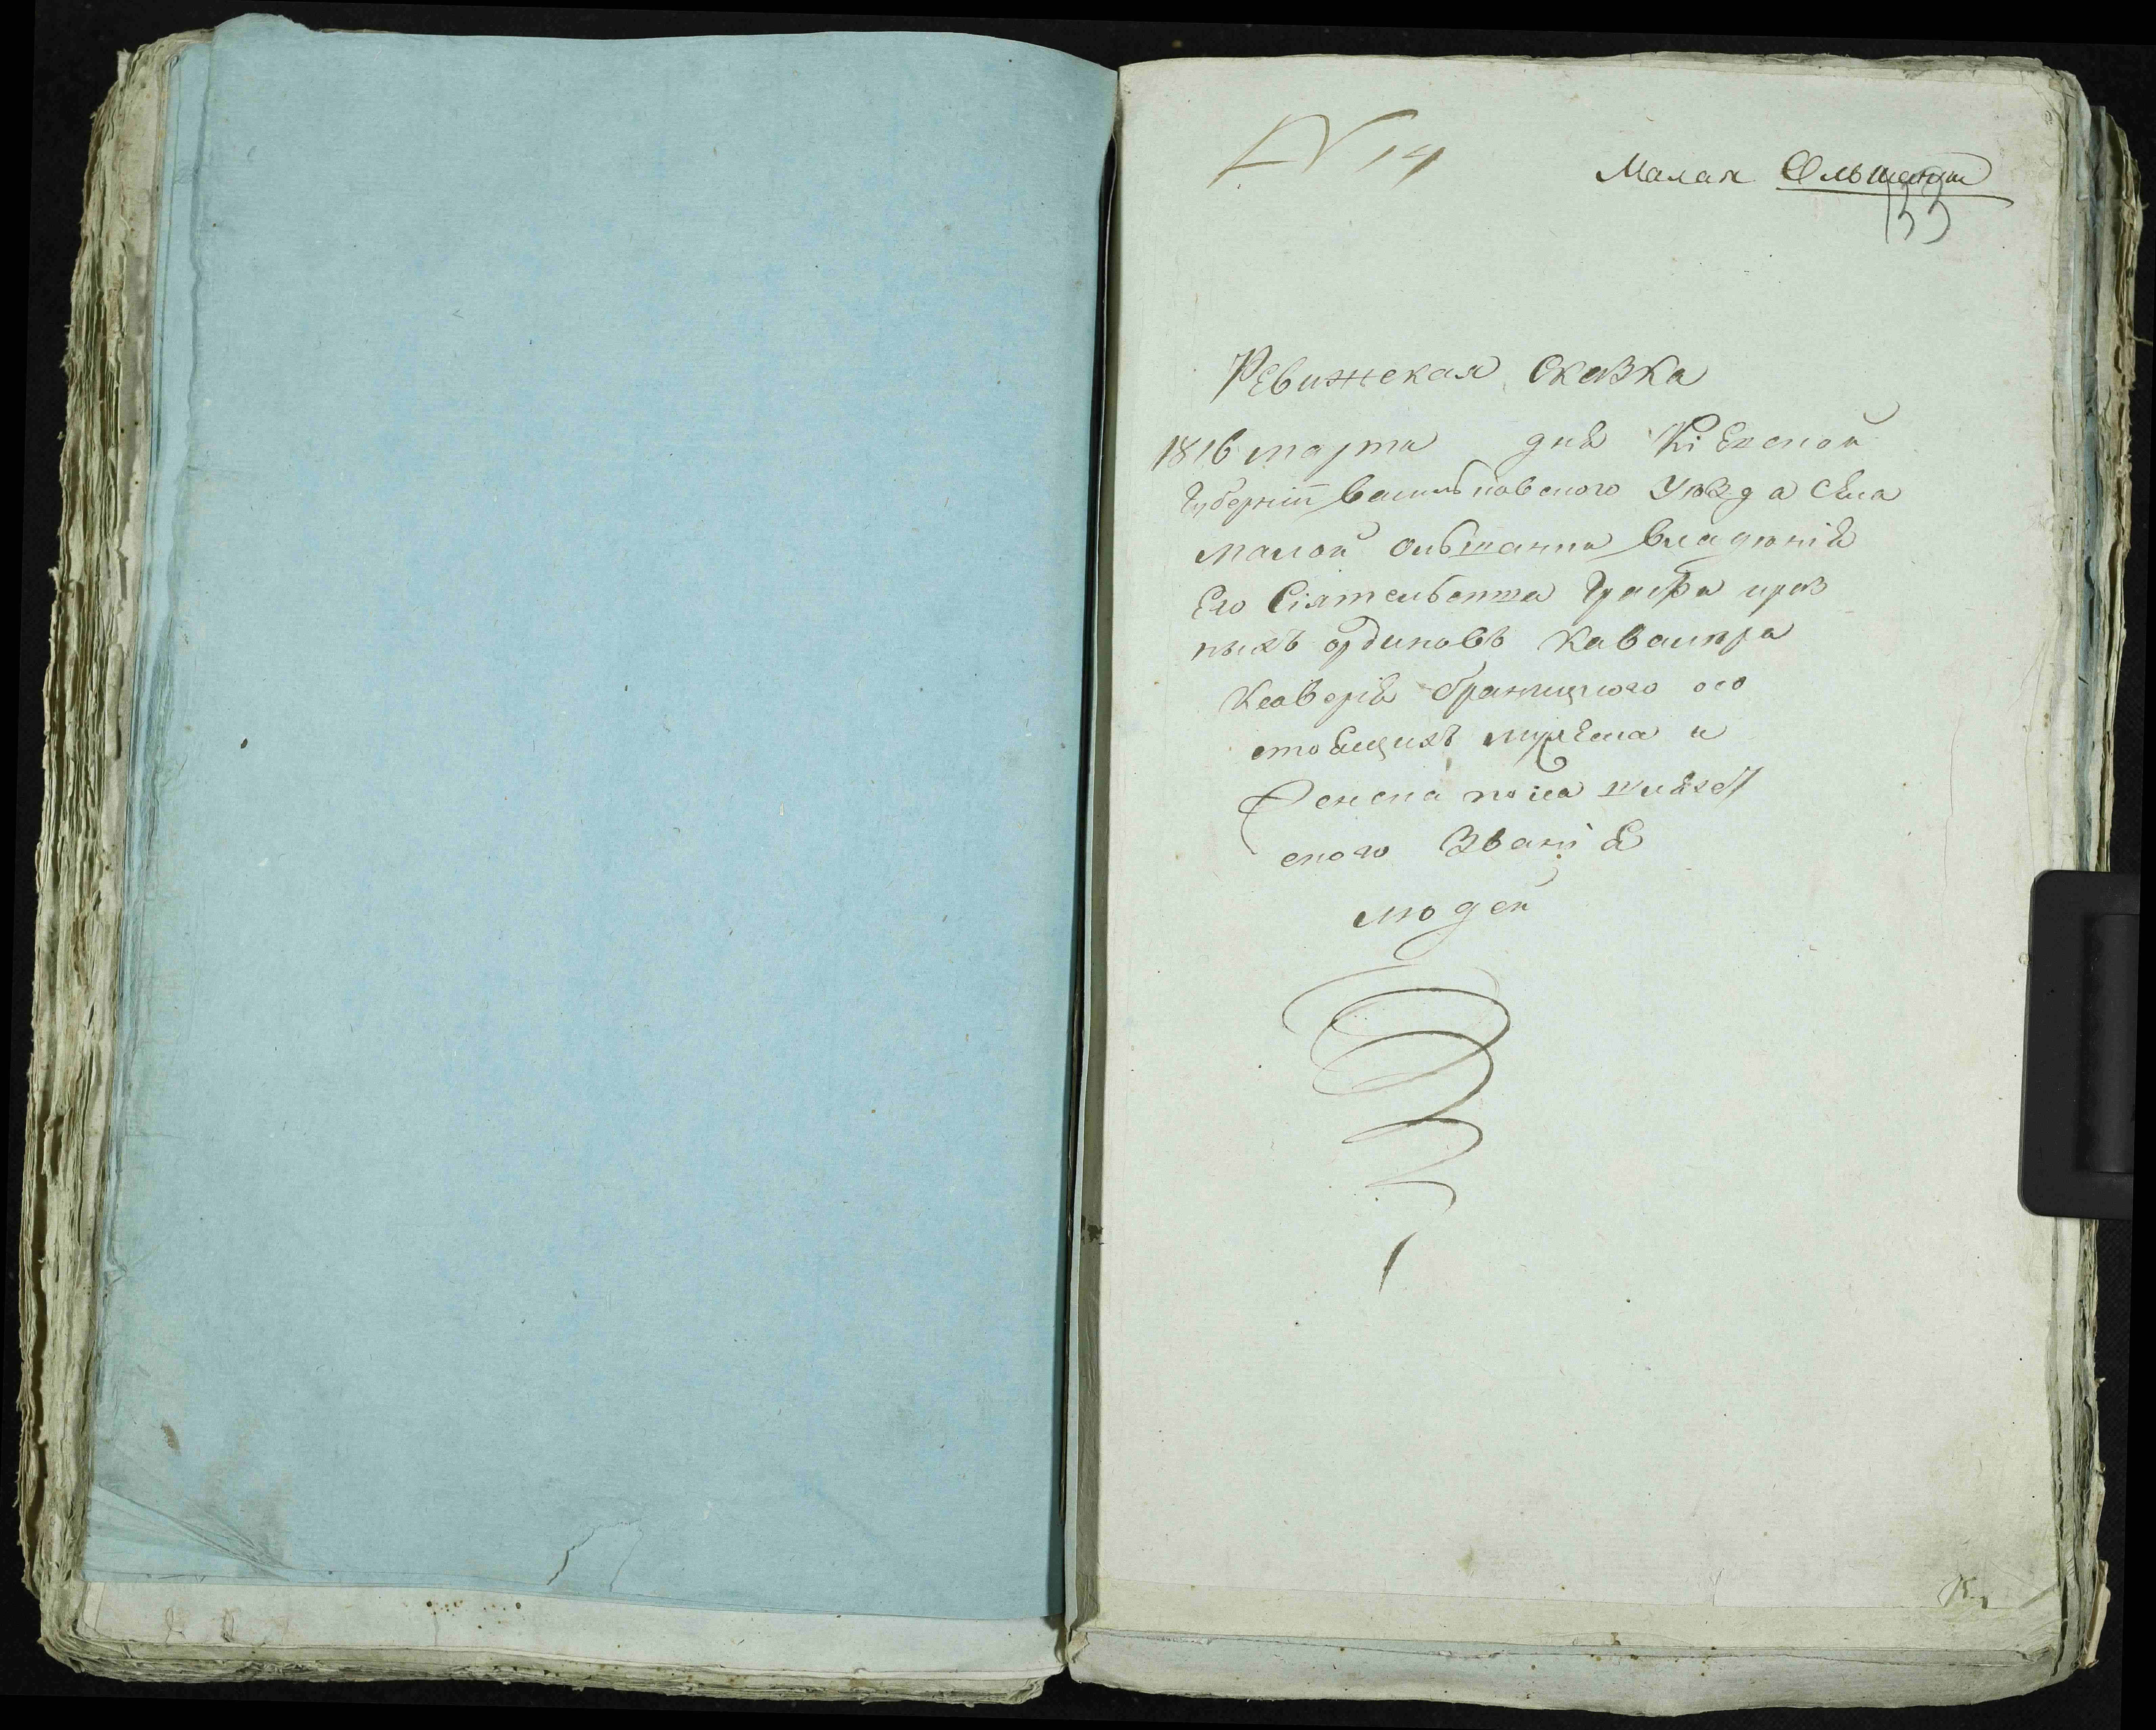 N 14
Малая Ольшанка
133
Ревижская Сказка
1816 марта дня Кіевской
Губерніи васильковского Уѣзда Села
малой ольшанки владѣнія
Его Сіятельства Графа
ныхъ ординовъ Кавалера
Ксаверія браницкого осо
стоящихъ мужеска и
Женска пола шляхет
ского Званія
людей